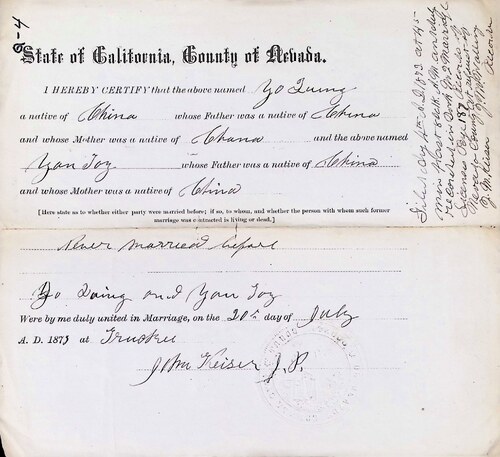 8-4
State of California, County of Nevada.
I HEREBY CERTIFY that the above named Yo Quing
a native of China whose Father was a native of China
and whose Mother was a native of Chana and the above named
Yan Toy whose Father was a native of China
and whose Mother was a native of China
[Here state as to whether either party were married before; if so, to whom, and whether the person with whom such former
marriage was contracted is living or dead.]
Never married before
Yo Quing and Yan Toy
Were by me duly united in Marriage, on the 20th day of July
A. D. 1873 at Truckee
John Keiser J. P.
Filed Aug A.D. 1873 at 45
min past 8 o'clk A.M. and duly
recorded in Marriage
Licenses Page 187 Records of
Nevada County at request of
Recorder